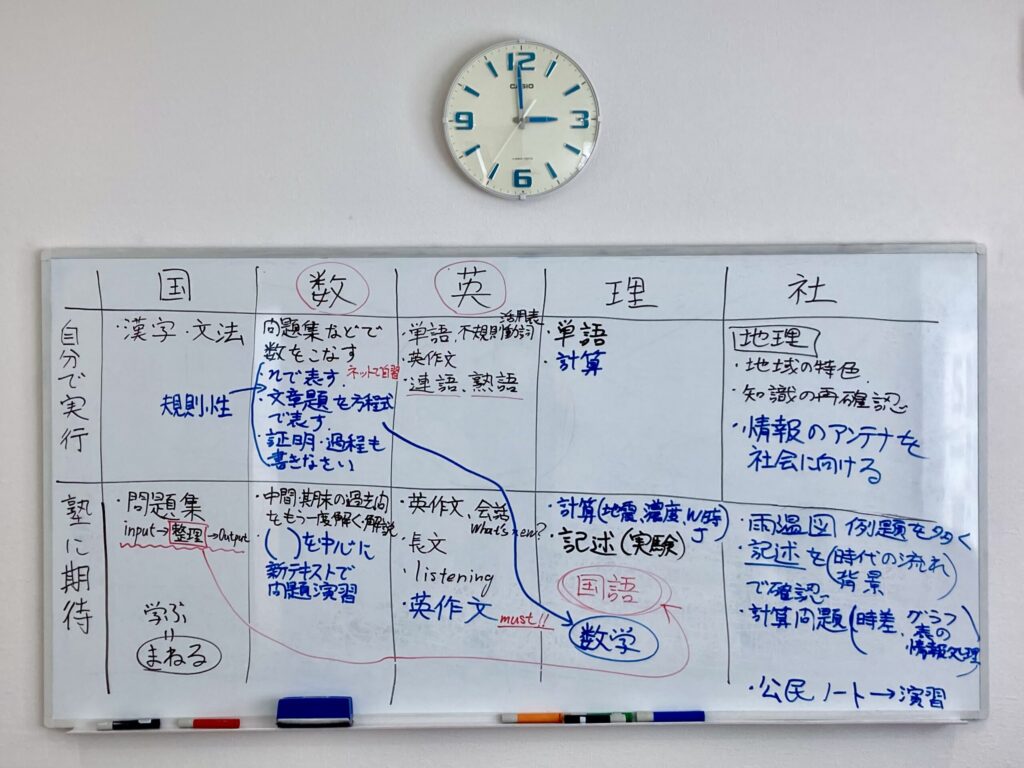 12
CASIO
9
3
6
国
数
英
理
社
自分で実行
・漢字・文法
問題集などで
数をこなす
・nで表す。
ネットで自習
・文章題を方程式
で表す
・証明・過程も
書きなさい
規則性
活用表
・単語、不規則動詞
・英作文
・連語、熟語
・単語
・計算
地理
・地域の特色
・知識の再確認
・情報のアンテナを
社会に向ける
塾に期待
・問題集
input→整理→Output
学ぶ
=
まねる
・中間・期末の過去問
をもう一度解く・解説
・( )を中心に
新テキストで
問題演習
・英作文、会話
What's new?
・長文
・listening
・英作文 must!!
・計算(地震、濃度、W時)
J
・記述(実験)
国語
数学
・雨温図 例題を多く
・記述を(時代の流れ
背景)
で確認
・計算問題(時差、グラフ
表の
情報処理)
・公民ノート→演習